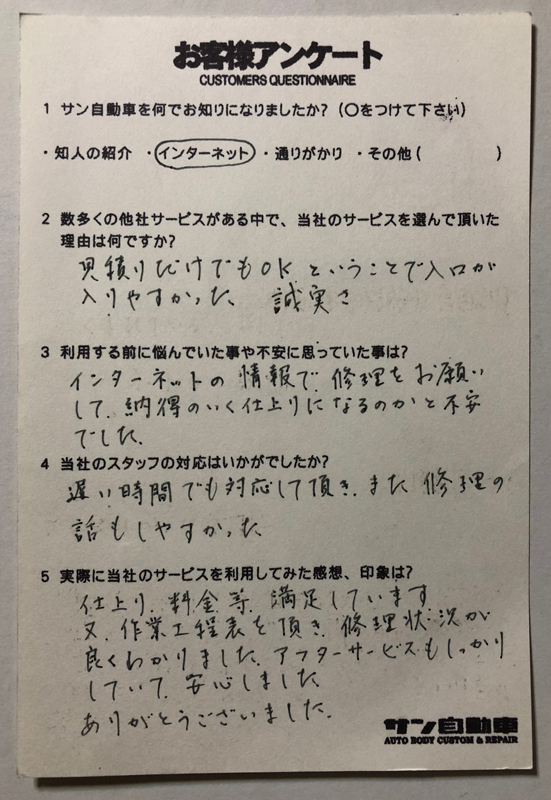 お客様アンケート
CUSTOMERS QUESTIONNAIRE
1 サン自動車を何でお知りになりましたか?(○をつけて下さい)
・知人の紹介 ・インターネット ・通りがかり ・その他( )
2 数多くの他社サービスがある中で、当社のサービスを選んで頂いた
理由は何ですか?
見積りだけでもOKということで入口が
入りやすかった、 誠実さ
3 利用する前に悩んでいた事や不安に思っていた事は?
インターネットの情報で修理をお願い
して、納得のいく仕上りになるのかと不安
でした。
4 当社のスタッフの対応はいかがでしたか?
遅い時間でも対応して頂き、また修理の
話もしやすかった
5 実際に当社のサービスを利用してみた感想、印象は?
仕上り、料金等、満足しています
又、作業工程表を頂き、修理状況が
良くわかりました、アフターサービスもしっかり
していて、安心しました
ありがとうございました。
サン自動車
AUTO BODY CUSTOM & REPAIR